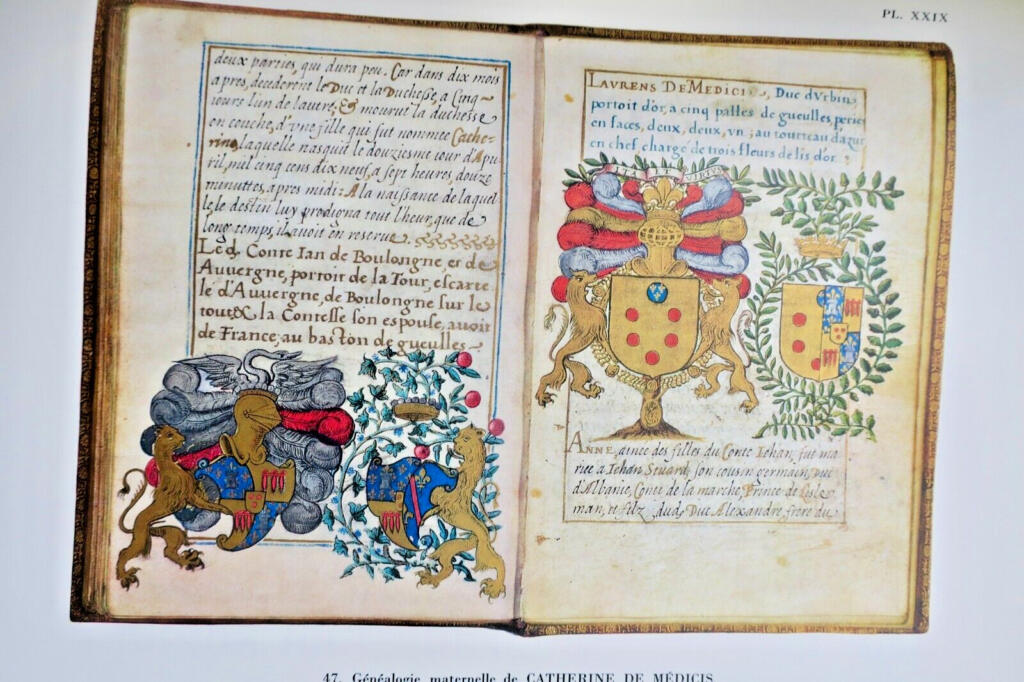 PL. XXIX
deux parties, qui dura peu. Car dans dix mois
apres, decederent le Duc et la Duchesse, a Cinq~
iours l'un de lautre, & mourut la duchesse
en couche, d'vne fille qui fut nommee Cathe-
rine, laquelle nasquit le douziesme iour d'Apu-
ril, mil cinq cens dix neuf, a sept heures, douze
minuttes, apres midi: A la naissance de laquel
le le destin luy prodigua tout l'heur, que de
long temps, il avoit en reserue.
Led. Conte Ian de Boulongne, et de
Auuergne, portoit de la Tour, escarte
lé d'Auuergne, de Boulongne sur le
tout & la Contesse son espouse, auoit
de France, au baston de gueulles~
LAVRENS DE MEDICIS, Duc d'Vrbin
portoit d'or, a cinq palles de gueulles, peries
en faces, deux, deux, vn; au tourteau d'azur
en chef chargé de trois fleurs de lis d'or.
VIRTVS
ANNE, ainee des filles du Conte Iehan, fut ma
riee a Iehan Stuard, son cousin germain, Duc
d'Albanie, Conte de la marche, Prince de Lisle
man, et filz dud. Duc Alexandre frere du
47. Généalogie maternelle de CATHERINE DE MÉDICIS